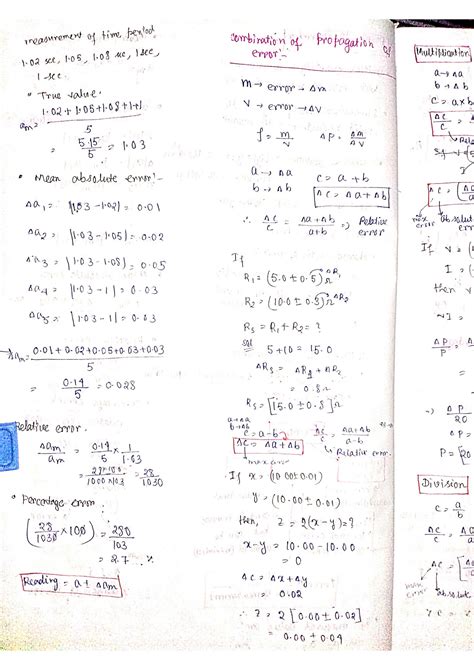 measurement of time period
1.02 sec, 1.05, 1.08 sec, 1 sec,
1 sec.
• True value:
am = 1.02 + 1.05 + 1.08 + 1 + 1 / 5
= 5.15 / 5 = 1.03
• Mean absolute error:-
Δa1 = |1.03 - 1.02| = 0.01
Δa2 = |1.03 - 1.05| = 0.02
Δa3 = |1.03 - 1.08| = 0.05
Δa4 = |1.03 - 1| = 0.03
Δa5 = |1.03 - 1| = 0.03
Δam = 0.01 + 0.02 + 0.05 + 0.03 + 0.03 / 5
= 0.14 / 5 = 0.028
Relative error.
Δam / am = 0.14 / 5 × 1 / 1.03
= 28 / 1030
• Percentage error:
(28 / 1030 × 100) = 280 / 103
= 2.7 %
Reading = a ± Δam
Combination of Propagation of
error:-
m → error → Δm
V → error → ΔV
f = m / V ΔP = Δm / ΔV
a → Δa c = a + b
b → Δb Δc = Δa + Δb
∴ Δc / c = Δa + Δb / a + b => Relative error
If
R1 = (5.0 ± 0.5) Ω ΔR1
R2 = (10.0 ± 0.3) Ω ΔR2
Rs = R1 + R2 = ?
Sol 5 + 10 = 15.0
ΔRs = ΔR1 + ΔR2
= 0.8 Ω
Rs = [15.0 ± 0.8] Ω
a → Δa
b → Δb
c = a - b Δc / c = Δa + Δb / a - b
Δc = Δa + Δb
max error Relative error.
If x = (10.00 ± 0.01)
y = (10.00 ± 0.01)
then, Z = 2(x - y) = ?
x - y = 10.00 - 10.00
= 0
Δc = Δx + Δy
= 0.02
∴ Z = 2 [0.00 ± 0.02]
= 0.00 ± 0.04
Multiplication
a → Δa
b → Δb
c = a × b
Δc / c =
max error
If V =
I =
then
ΔP / P =
ΔP / 20
ΔP =
P = 20
Division
c = a / b
Δc / c =
Δc =
max error